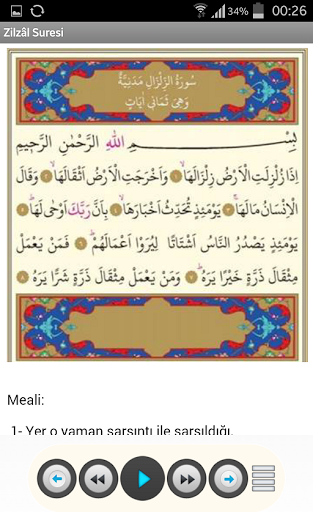 34% 00:26
Zilzâl Suresi
سُورَةُ الزِّلْزَالِ مَدَنِيَّةٌ
وَهِيَ ثَمَانِي اٰيَاتٍ
بِسْمِ اللّٰهِ الرَّحْمٰنِ الرَّحِيمِ
اِذَا زُلْزِلَتِ الْاَرْضُ زِلْزَالَهَاۙ ﴿١﴾ وَاَخْرَجَتِ الْاَرْضُ اَثْقَالَهَاۙ ﴿٢﴾ وَقَالَ
الْاِنْسَانُ مَالَهَاۚ ﴿٣﴾ يَوْمَئِذٍ تُحَدِّثُ اَخْبَارَهَاۙ ﴿٤﴾ بِاَنَّ رَبَّكَ اَوْحٰى لَهَاۜ ﴿٥﴾
يَوْمَئِذٍ يَصْدُرُ النَّاسُ اَشْتَاتًا لِيُرَوْا اَعْمَالَهُمْۜ ﴿٦﴾ فَمَنْ يَعْمَلْ
مِثْقَالَ ذَرَّةٍ خَيْرًا يَرَهُۜ ﴿٧﴾ وَمَنْ يَعْمَلْ مِثْقَالَ ذَرَّةٍ شَرًّا يَرَهُ ﴿٨﴾
Meali:
1- Yer o yaman sarsıntı ile sarsıldığı,